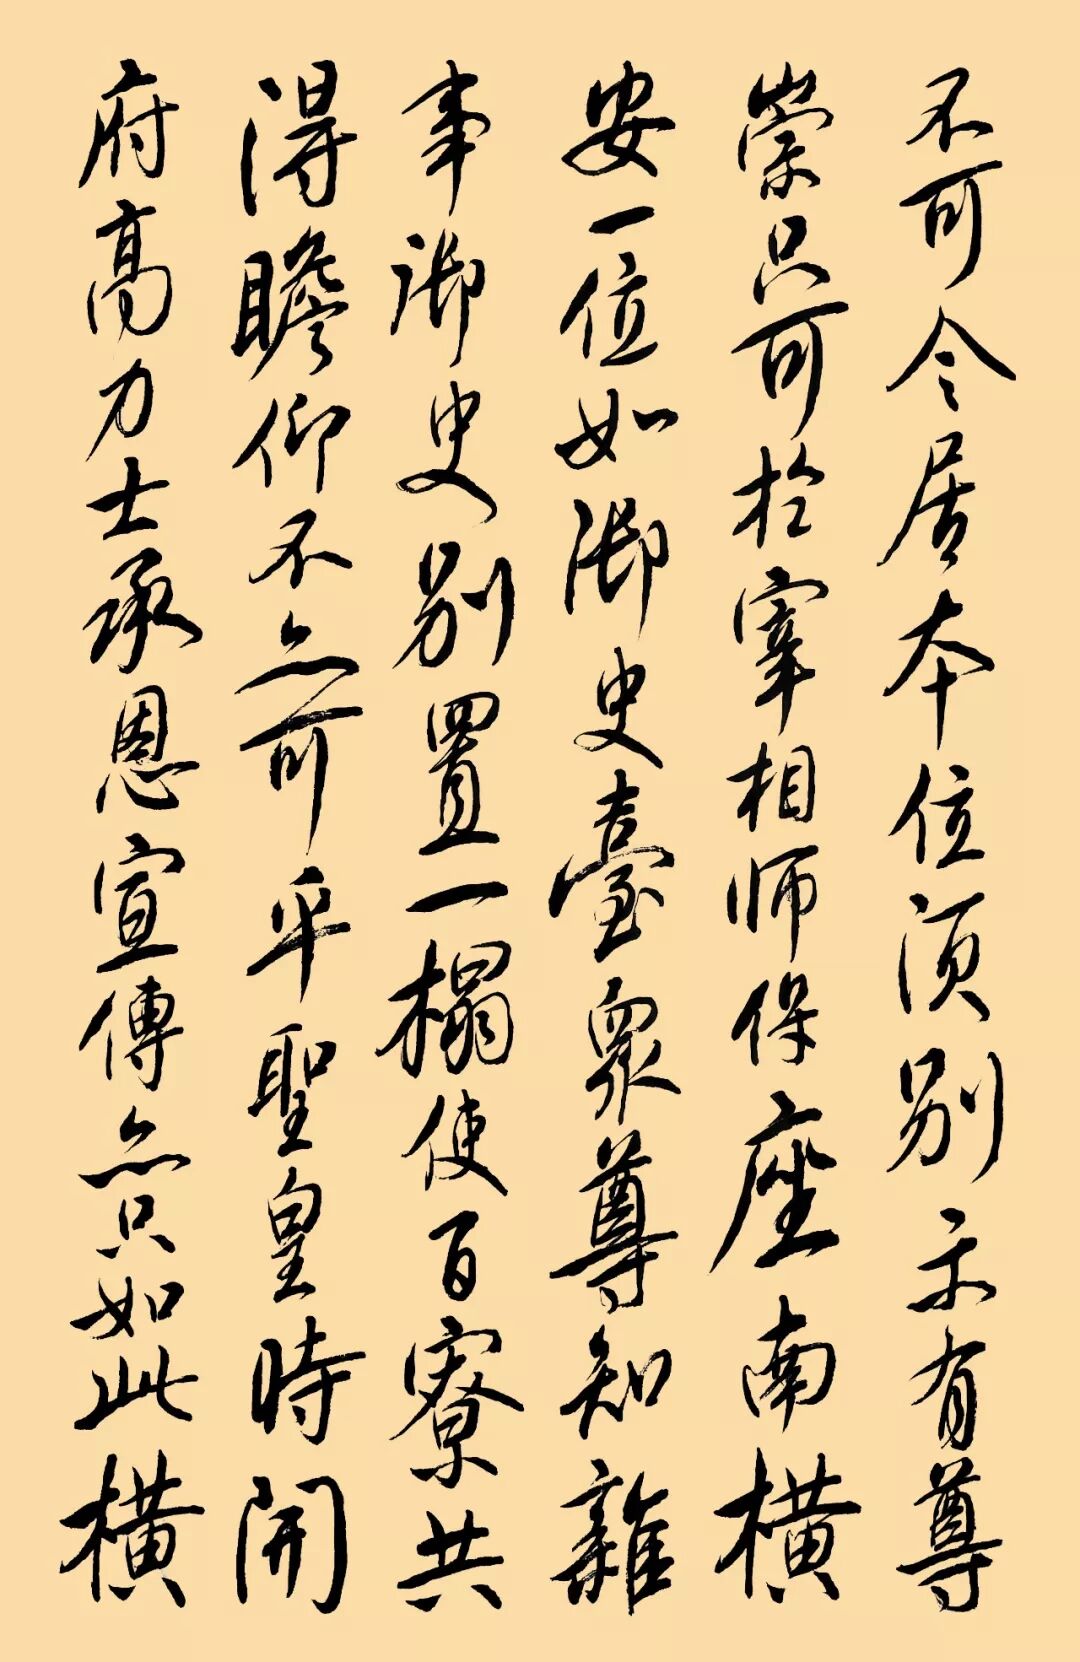 不可令居本位須別示有尊
崇只可於宰相師保座南橫
安一位如御史臺衆尊知雜
事御史別置一榻使百寮共
得瞻仰不亦可乎聖皇時開
府高力士承恩宣傳亦只如此橫